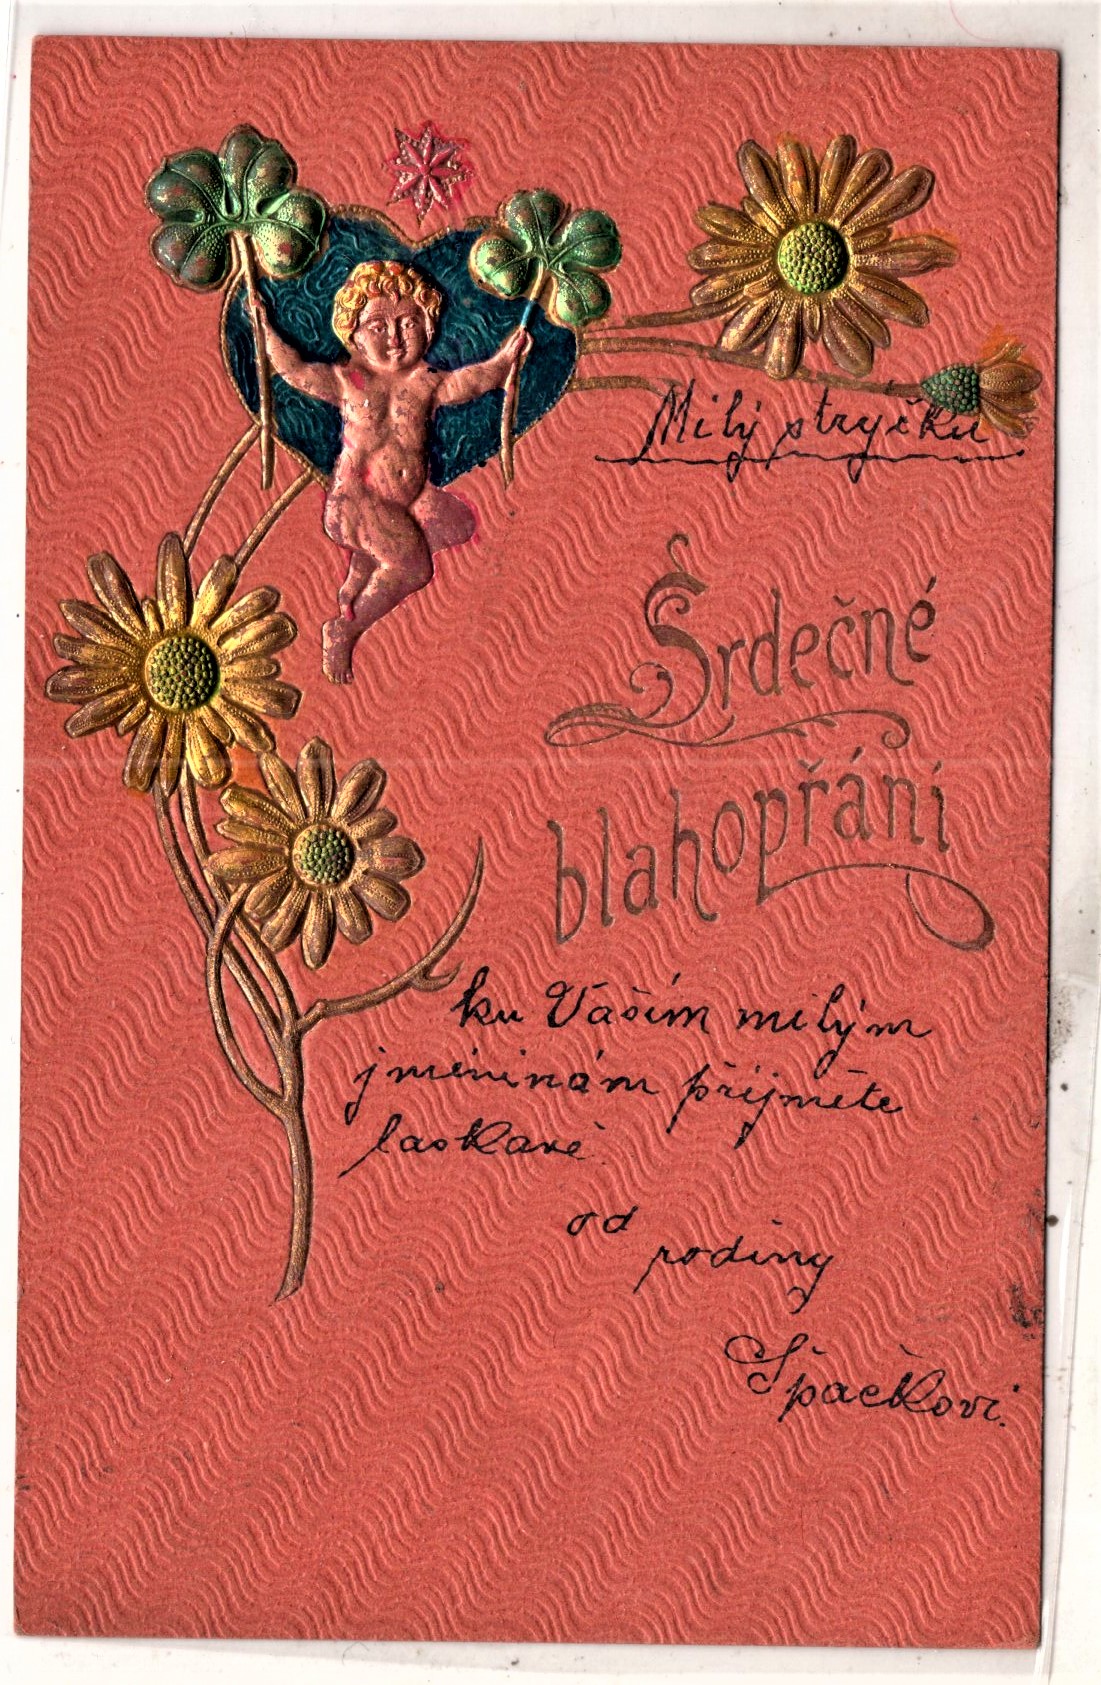 Milý strýčku
Srdečné
blahopřání
ku Vaším milým
jméninám přijměte
laskavě.
od
rodiny
Špačkovi.